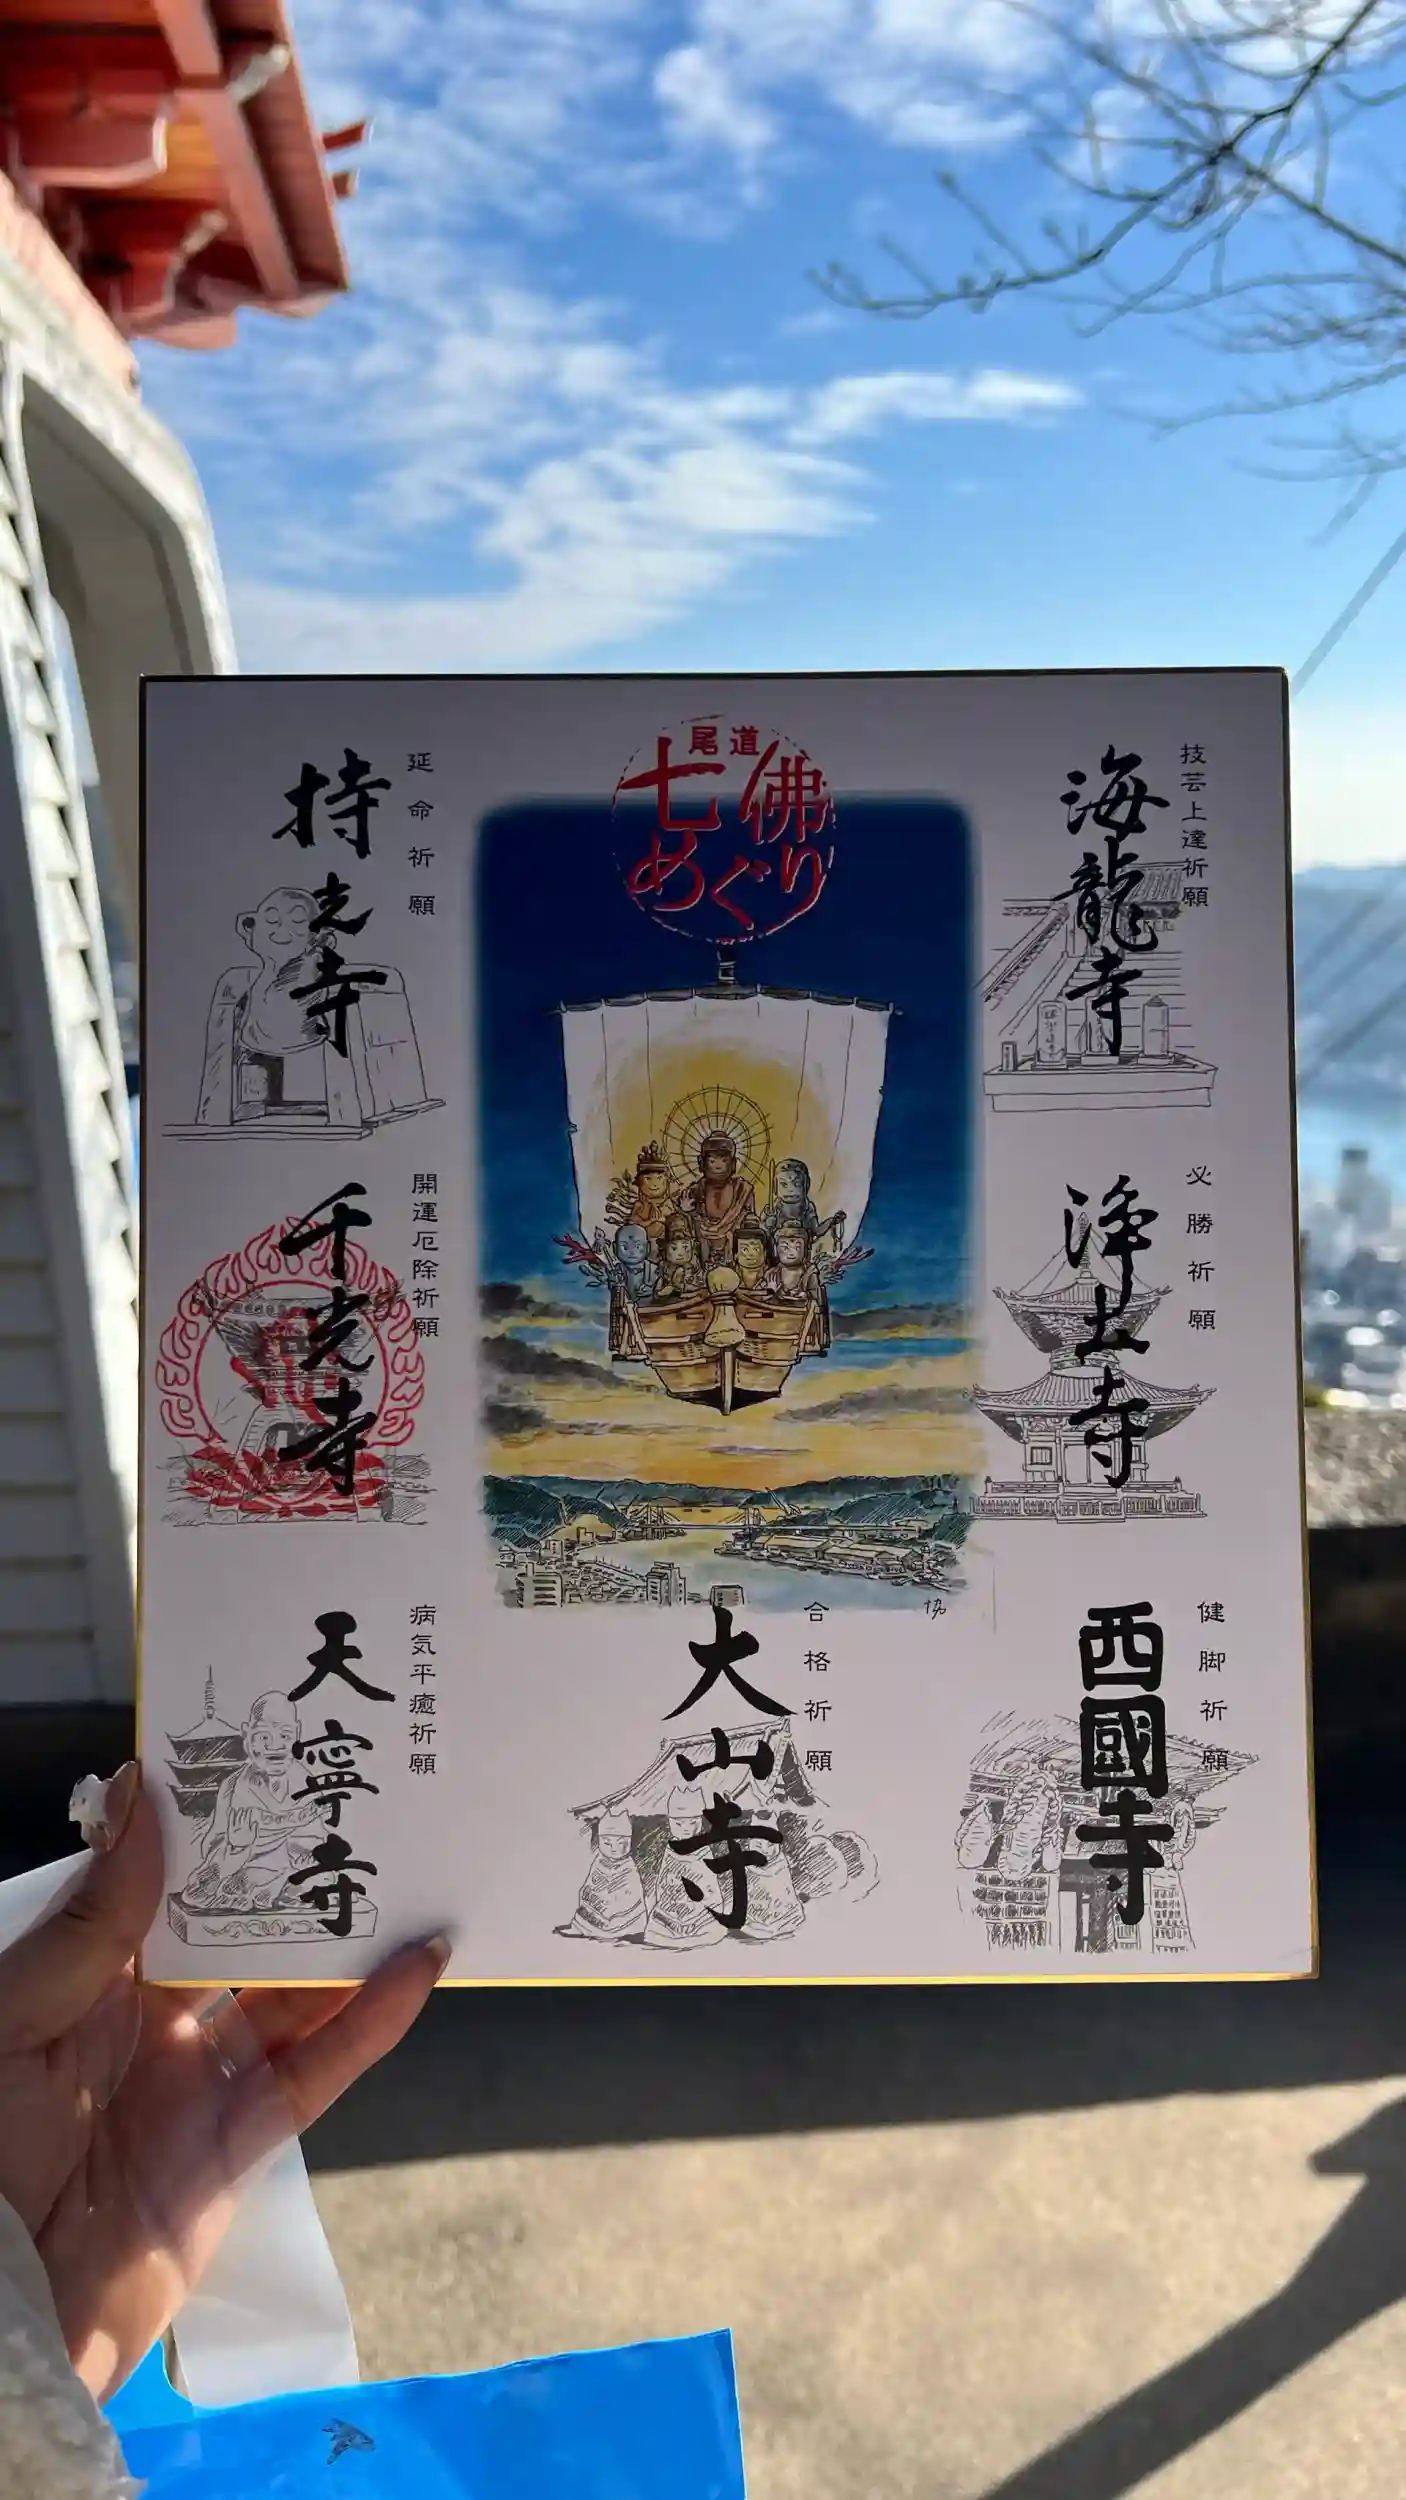 尾道
七佛
めぐり
持光寺
延命祈願
海龍寺
技芸上達祈願
千光寺
開運厄除祈願
浄土寺
必勝祈願
天寧寺
病気平癒祈願
大山寺
合格祈願
西國寺
健脚祈願